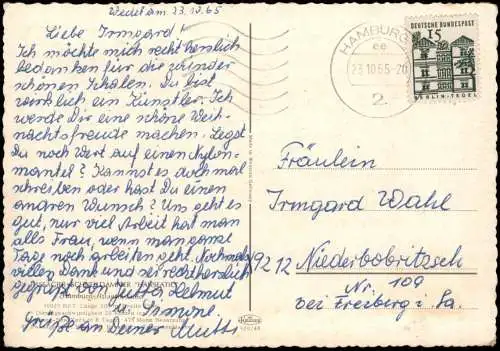 Wedel am 23.10.65
Liebe Irmgard!
Ich möchte mich recht herzlich
bedanken für die wunder
schönen Schalen. Du bist
wirklich ein Künstler. Ich
werde Dir eine schöne Weih-
nachtsfreude machen. Legst
Du noch Wert auf einen Nylon-
mantel? Kannst es doch mal
schreiben oder hast Du einen
andren Wunsch? Uns geht es
gut, nur viel Arbeit hat man
als Frau, wenn man ganze
Tage noch arbeiten geht. Nochmals
vielen Dank und sei recht herzlich
gegrüßt von Jutta, Helmut
u. Simone.
Grüße an Deine Mutti
HAMBURG
ee
23.10.65-20
2
DEUTSCHE BUNDESPOST
15
BERLIN-TEGEL
Fräulein
Irmgard Wahl
9212 Niederbobritzsch
Nr. 109
bei Freiberg i. Sa.